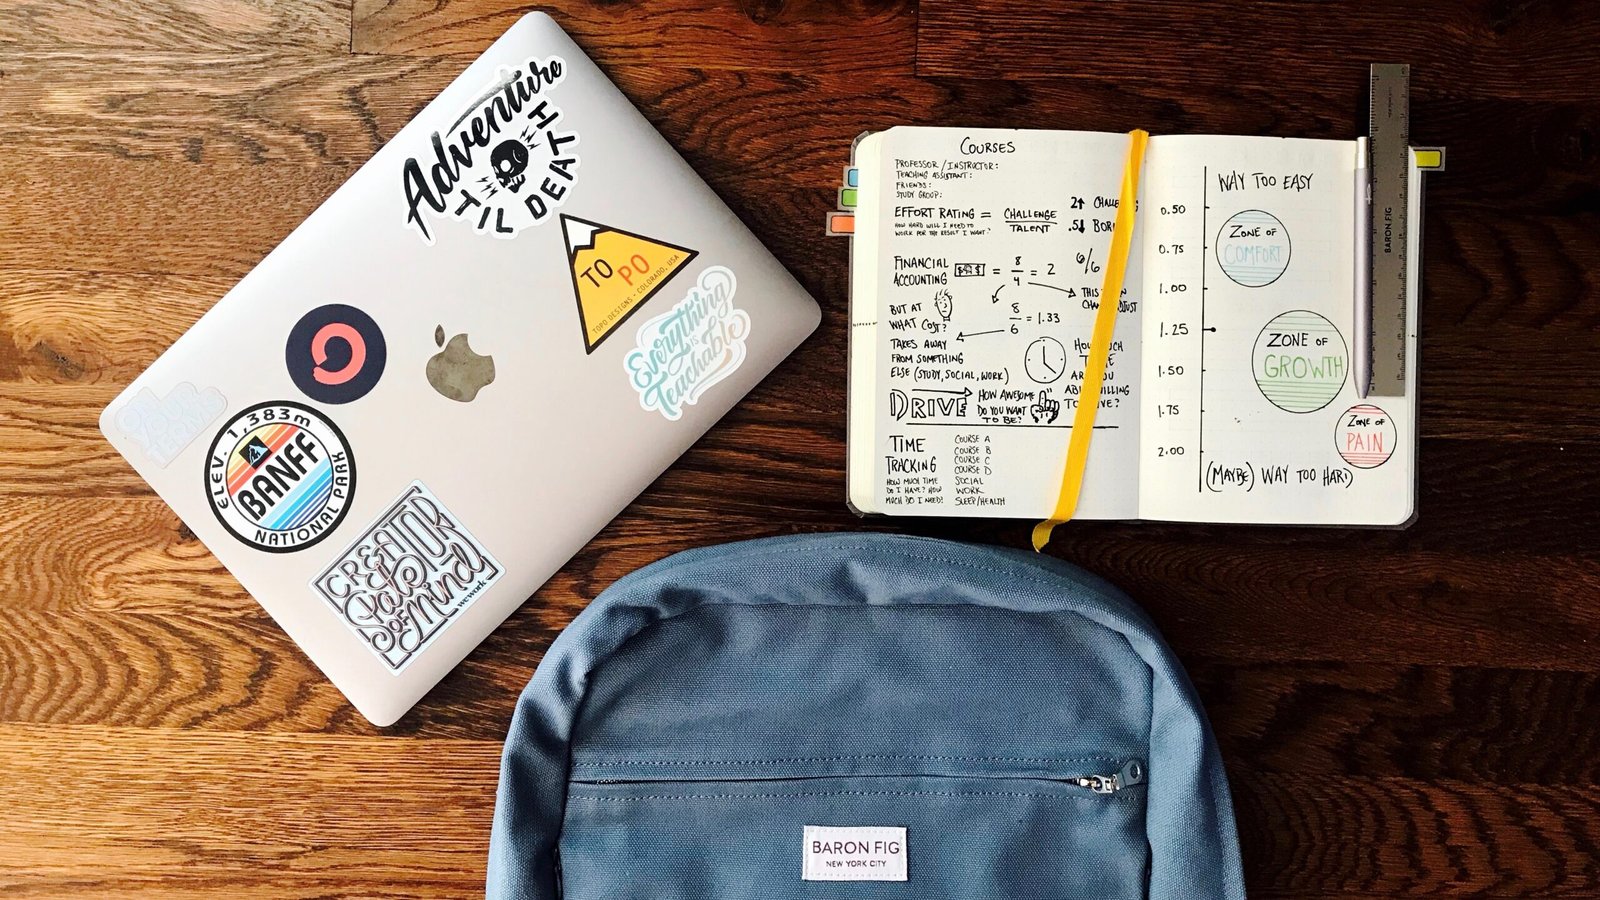 Adventure
'TIL DEATH
TO PO
TOPO DESIGNS • COLORADO, USA
Everything
is
Teachable
ELEV. 1,383m
BANFF
NATIONAL PARK
CREATOR
State
OF
Mind
wework
COURSES
PROFESSOR / INSTRUCTOR:
TEACHING ASSISTANT:
FRIENDS:
STUDY GROUP:
EFFORT RATING = CHALLENGE
TALENT
HOW HARD WILL I NEED TO
WORK FOR THE RESULT I WANT?
2↑
.5↓
FINANCIAL
ACCOUNTING
$$$ = 8/4 = 2
6/6
BUT AT
WHAT COST?
8/6 = 1.33
THIS
TAKES AWAY
FROM SOMETHING
ELSE (STUDY, SOCIAL, WORK)
DRIVE
HOW AWESOME
DO YOU WANT
TO BE?
TIME
TRACKING
HOW MUCH TIME
DO I HAVE? HOW
MUCH DO I NEED?
COURSE A
COURSE B
COURSE C
COURSE D
SOCIAL
WORK
SLEEP/HEALTH
WAY TOO EASY
0.50
0.75
1.00
1.25
1.50
1.75
2.00
ZONE OF
COMFORT
ZONE OF
GROWTH
ZONE OF
PAIN
(MAYBE) WAY TOO HARD
BARON FIG
BARON FIG
NEW YORK CITY